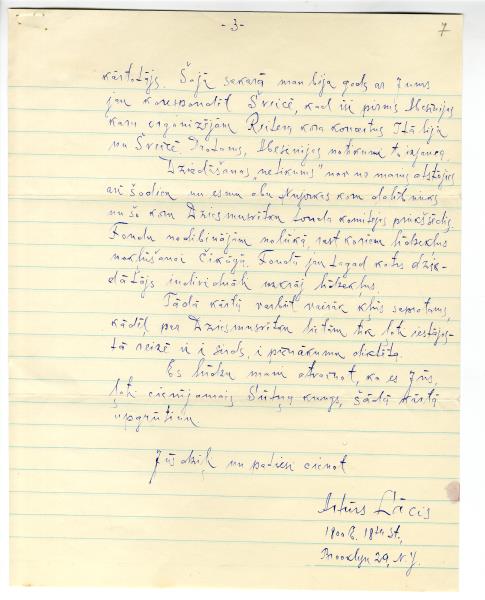 -3-
7
kārtotājs. Šajā sakarā man bija gods ar Jums
jau korespondēt Šveicē, kad īsi pirms Abesīnijas
kara organizējām Reitera kora koncertus Itālijā
un Šveicē. Protams, Abesīnijas notikumi to izjauca.
Dziedāšanas "netikums" nav no manis atstājies
arī šodien un esmu abu Ņujorkas koru dalībnieks
un šo koru Dziesmusvētku fonda komitejas priekšsēdis.
Fondu nodibinājām nolūkā, rast koriem līdzekļus
nokļūšanai Čikāgā. Fondā jau tagad katrs dzie-
dātājs individuāli uzkrāj līdzekļus.
Tādā kārtā varbūt vairāk kļūs saprotams,
kādēļ par Dziesmusvētku lietām tik ļoti iestājos-
tā reizē ir i sirds, i pienākuma diktēts.
Es lūdzu mani atvainot, ka es Jūs,
ļoti cienījamais kungs, šādā kārtā
apgrūtinu.
Jūs dziļi un patiesi cienot
Artūrs Lācis
1900 E. 18th St.,
Brooklyn 29, N.Y.